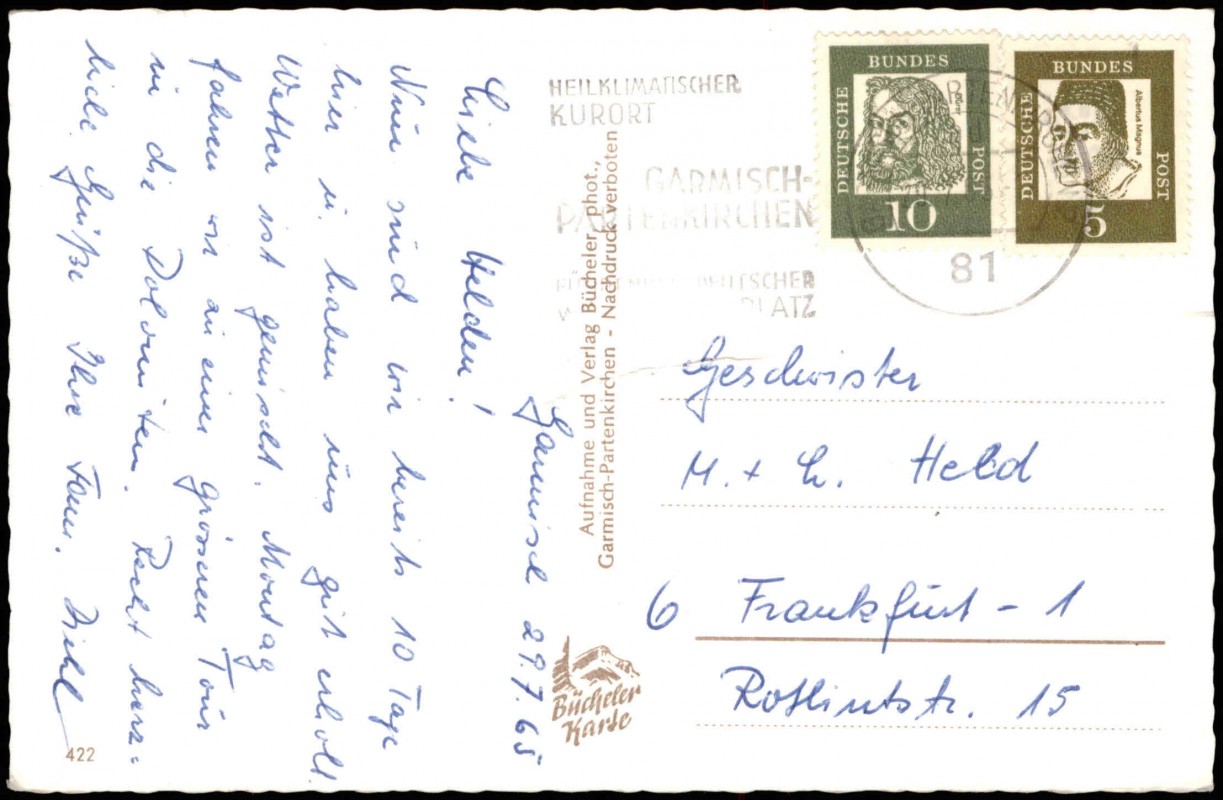 Garmisch 29.7.65
Liebe Helden!
Nun sind wir bereits 10 Tage
hier u. haben uns gut erholt.
Wetter ist gemischt. Montag
fahren wir zu einer grösseren Tour
in die Dolomiten. Recht herz=
liche Grüße Ihre Fam. Diehl
422
Aufnahme und Verlag Bücheler phot.,
Garmisch-Partenkirchen - Nachdruck verboten
Bücheler
Karte
HEILKLIMATISCHER
KURORT
GARMISCH-
PARTENKIRCHEN
DEUTSCHER
PLATZ
DEUTSCHE
BUNDES
POST
10
DEUTSCHE
BUNDES
POST
Albertus Magnus
5
81
Geschwister
M. + L. Held
6 Frankfurt - 1
Rotlintstr. 15